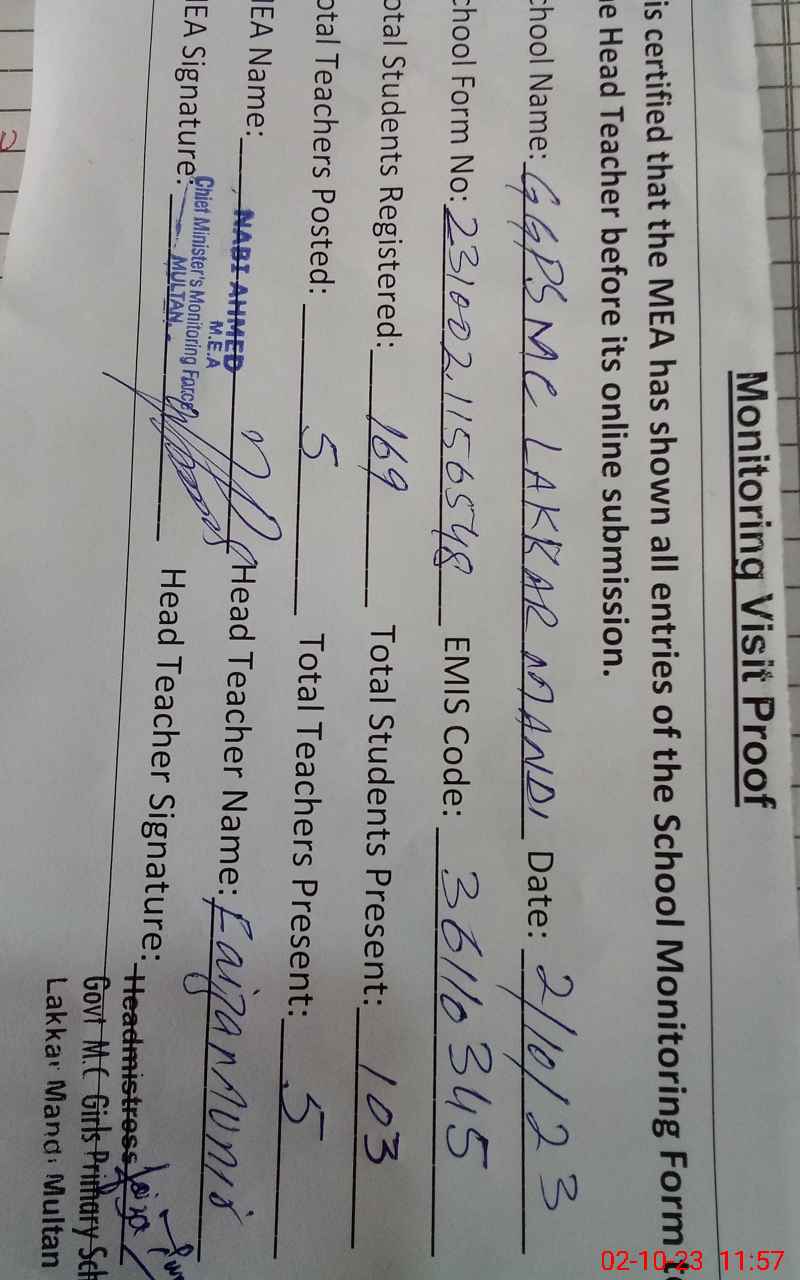 Monitoring Visit Proof
is certified that the MEA has shown all entries of the School Monitoring Form t
e Head Teacher before its online submission.
chool Name: GGPS MC LAKKAR MANDI Date: 2/10/23
chool Form No: 2310021156548 EMIS Code: 36110345
otal Students Registered: 169 Total Students Present: 103
otal Teachers Posted: 5 Total Teachers Present: 5
MEA Name: NABI AHMED Head Teacher Name:
M.E.A
Chief Minister's Monitoring Force
MULTAN.
MEA Signature: Head Teacher Signature:
Headmistress
Govt M.C Girls Primary Sch
Lakkar Mandi Multan
02-10-23 11:57